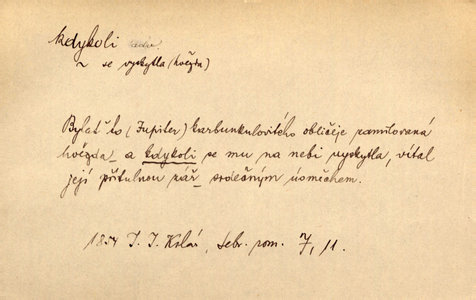 kdykoli adv.
~ se vyskytla (hvězda)
Bylať to (Jupiter) karbunkulovitého obličeje zamilovaná
hvězda_ a kdykoli se mu na nebi vyskytla, vítal
její přítulnou zář_ srdečným úsměchem.
1854 J. J. Kolár, Sebr. rom. 7, 11.